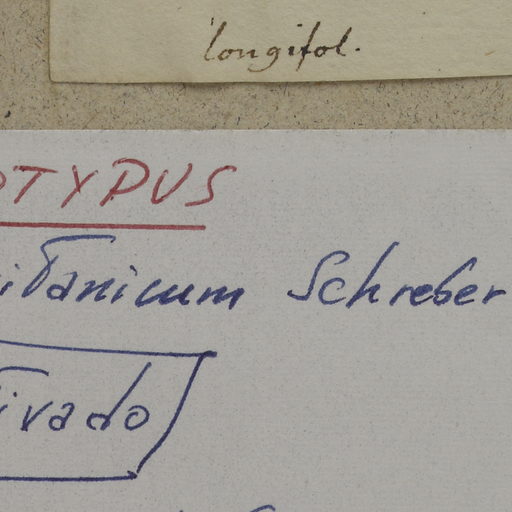 longifol.
OTYPUS
itanicum Schreber
ivado